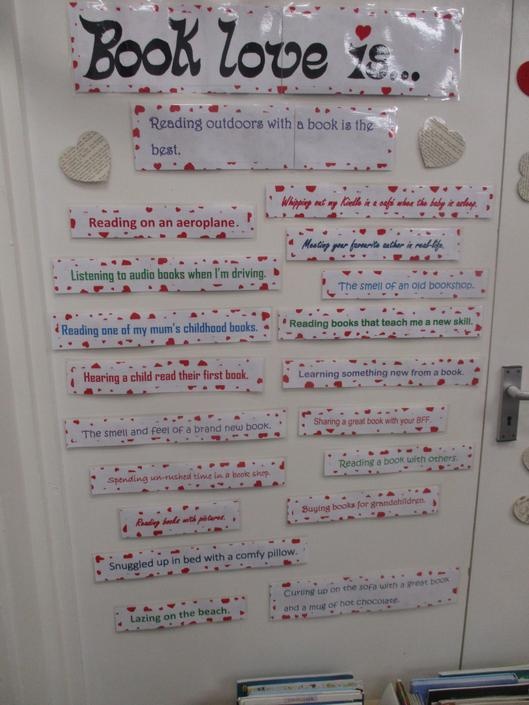 Book love is...
Reading outdoors with a book is the
best.
Whipping out my Kindle in a café when the baby is asleep.
Reading on an aeroplane.
Meeting your favourite author in real-life.
Listening to audio books when I'm driving.
The smell of an old bookshop.
Reading one of my mum's childhood books.
Reading books that teach me a new skill.
Hearing a child read their first book.
Learning something new from a book.
The smell and feel of a brand new book.
Sharing a great book with your BFF.
Reading a book with others.
Spending un-rushed time in a book shop.
Buying books for grandchildren.
Reading books with pictures.
Snuggled up in bed with a comfy pillow.
Curling up on the sofa with a great book
and a mug of hot chocolate.
Lazing on the beach.